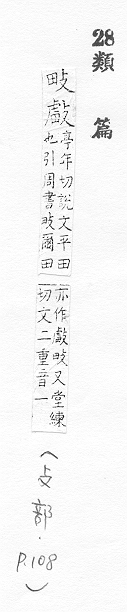 28
類篇
畋
亭年切說文平田
也引周書畋爾田
亦作 畋又堂練
切文二重音一
(攴部.
P.108)